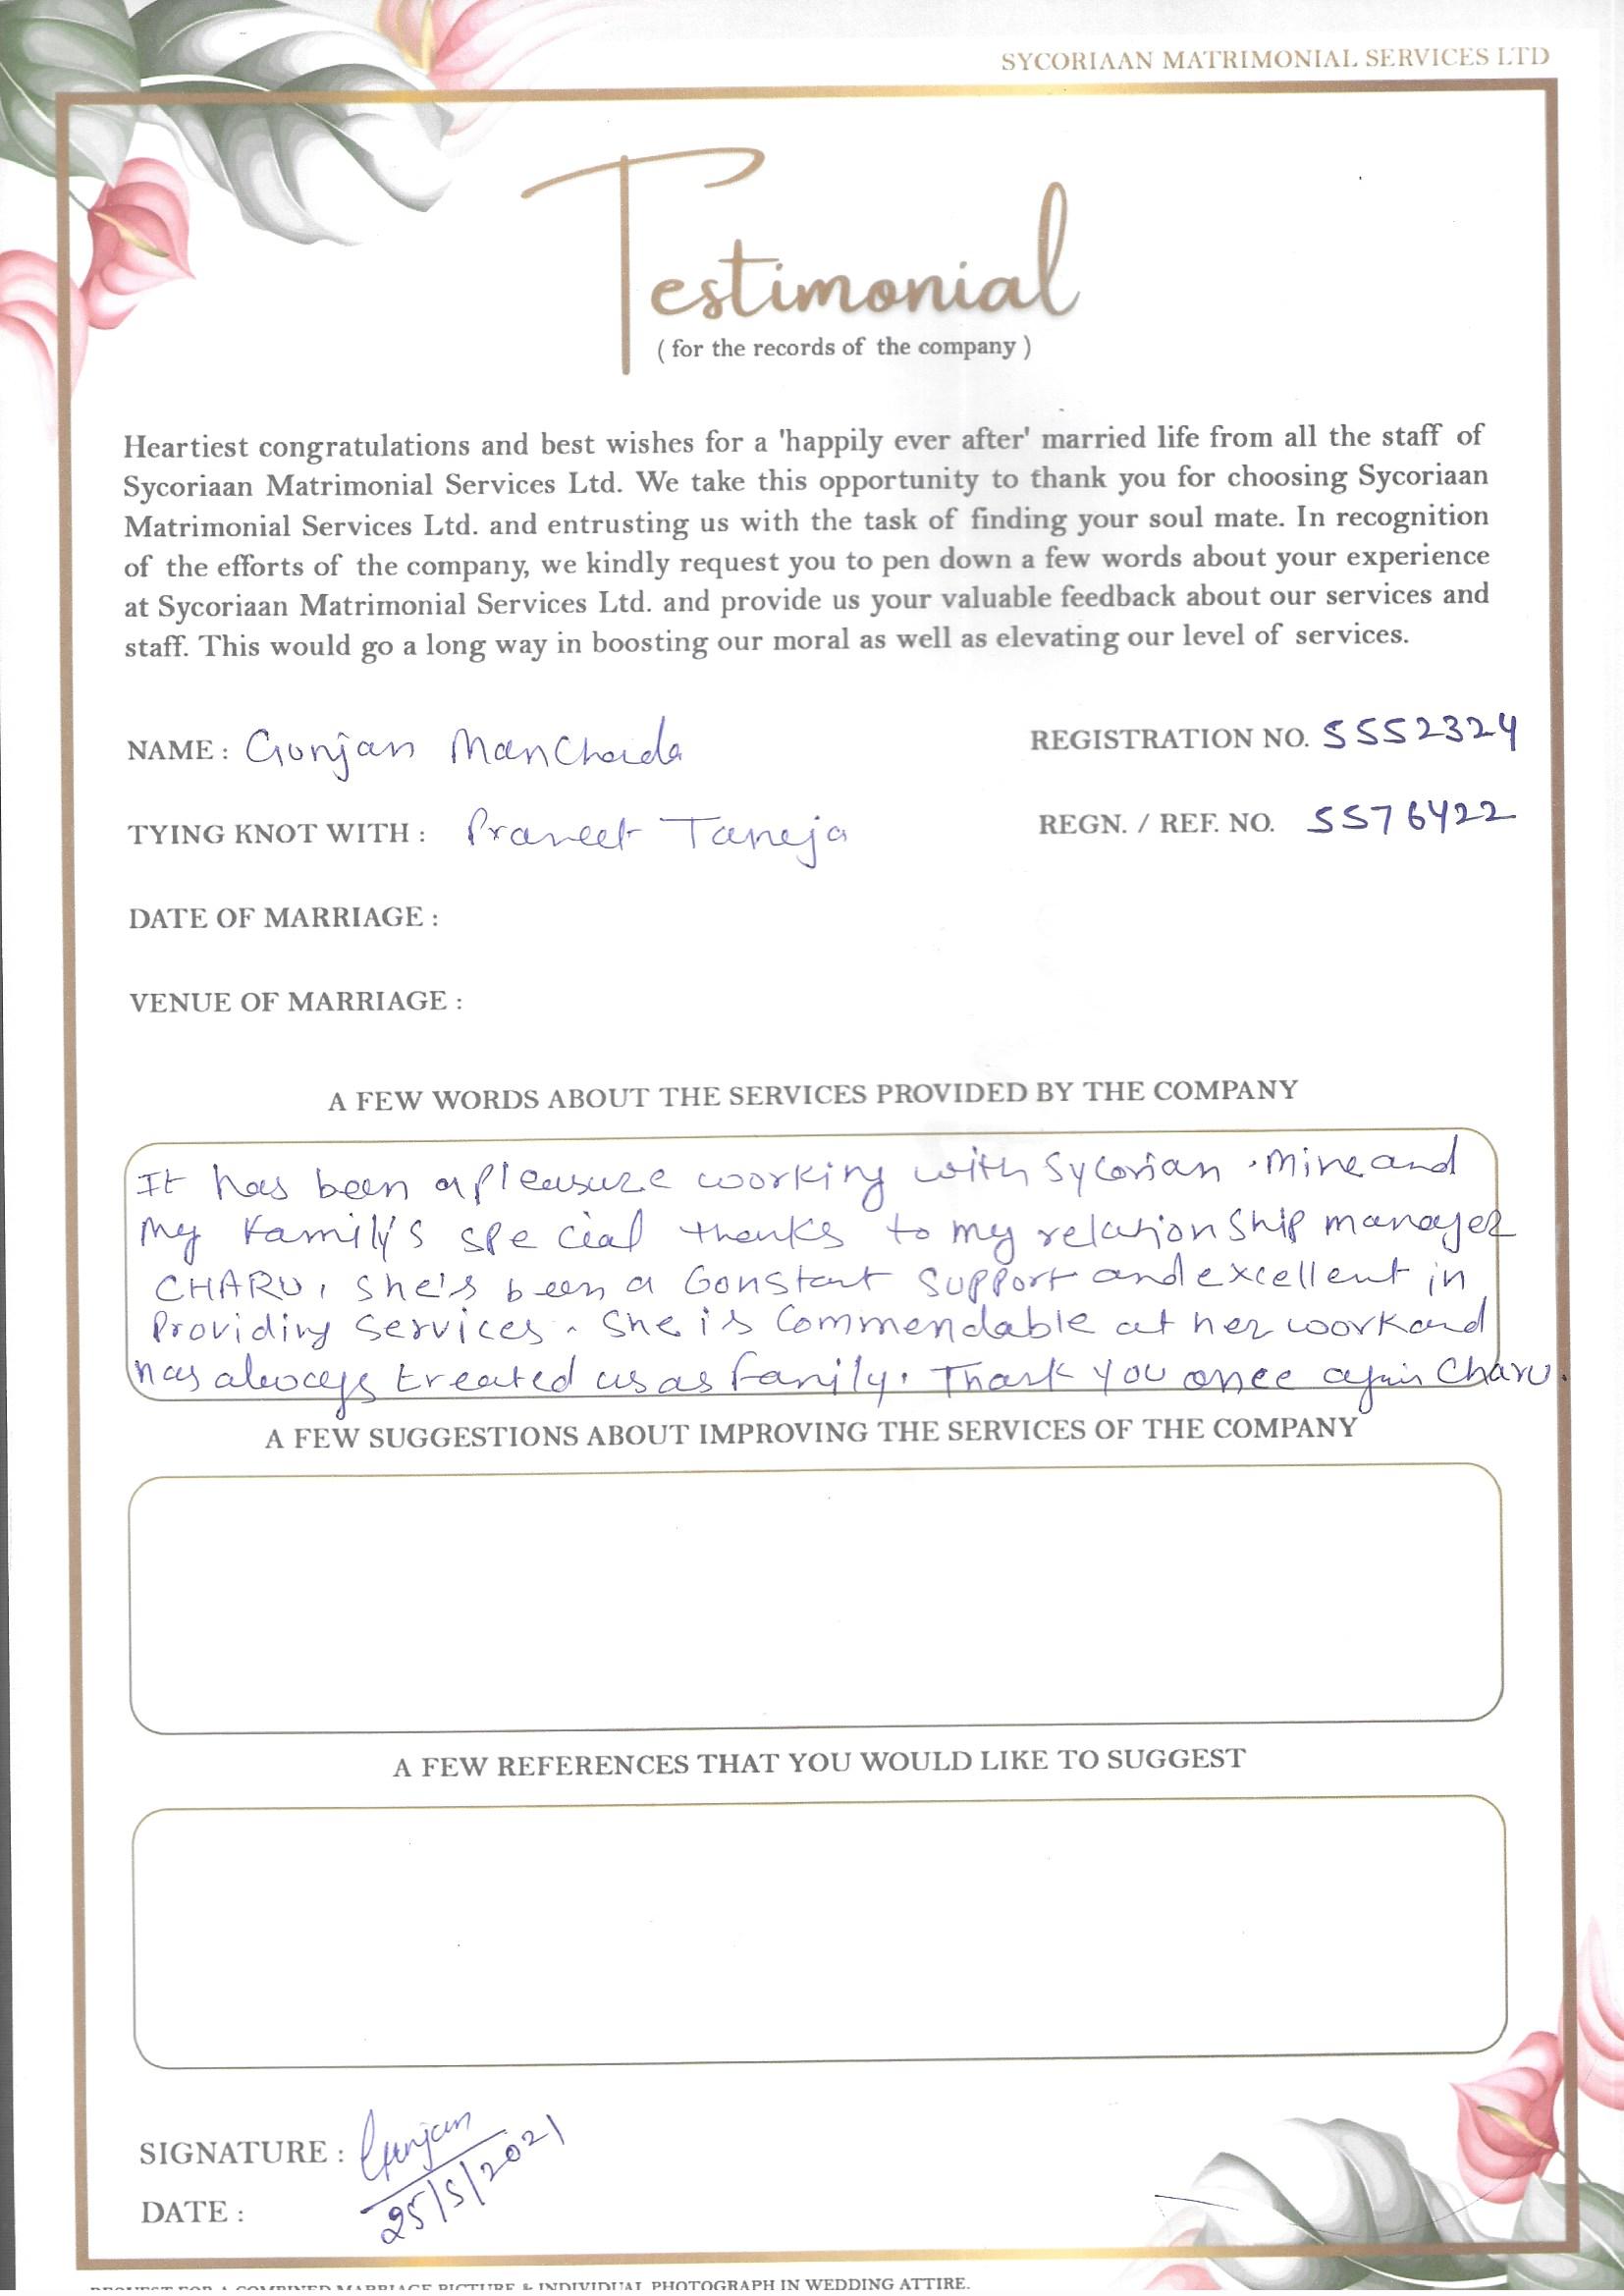 SYCORIAAN MATRIMONIAL SERVICES LTD
Testimonial
( for the records of the company )
Heartiest congratulations and best wishes for a 'happily ever after' married life from all the staff of
Sycoriaan Matrimonial Services Ltd. We take this opportunity to thank you for choosing Sycoriaan
Matrimonial Services Ltd. and entrusting us with the task of finding your soul mate. In recognition
of the efforts of the company, we kindly request you to pen down a few words about your experience
at Sycoriaan Matrimonial Services Ltd. and provide us your valuable feedback about our services and
staff. This would go a long way in boosting our moral as well as elevating our level of services.
NAME : Gunjan Manchanda REGISTRATION NO. 5552324
TYING KNOT WITH : Praneet Taneja REGN. / REF. NO. 5576422
DATE OF MARRIAGE :
VENUE OF MARRIAGE :
A FEW WORDS ABOUT THE SERVICES PROVIDED BY THE COMPANY
It has been a pleasure working with Sycorian . Mine and
My Family's special thanks to my relationship manager
CHARU, she's been a Constant Support and excellent in
Providing services. She is Commendable at her work and
has always treated us as family. Thank you once again Charu.
A FEW SUGGESTIONS ABOUT IMPROVING THE SERVICES OF THE COMPANY
A FEW REFERENCES THAT YOU WOULD LIKE TO SUGGEST
SIGNATURE : Gunjan
DATE : 25/5/2021
REQUEST FOR A COMBINED MARRIAGE PICTURE & INDIVIDUAL PHOTOGRAPH IN WEDDING ATTIRE.